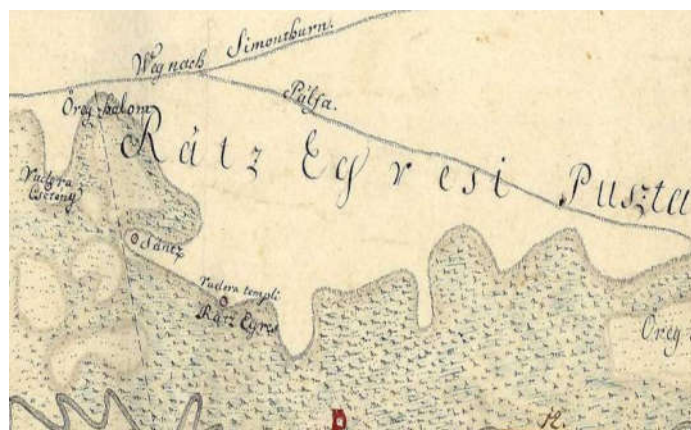 Weg nach Simonthurn.
Pálfa.
Öreg halom
Rátz Egresi Puszta
Rudera
Csetény
Sáncz
rudera templi
Rátz Egres
Öreg